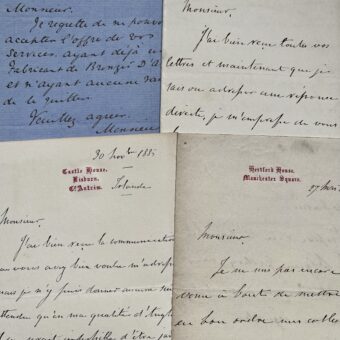 Monsieur.
Je regrette de ne pouvoi
accepter l'offre de vos
services. ayant déjà un
Fabricant de Bronzes D'A
et n'ayant aucune
de le quitter.
Veuillez agréer.
Monsieur
Monsieur,
J'ai bien reçu toutes vos
lettres et maintenant que je
sais ou adresser une réponse
directe, je m'empresse de vous
30 Novbre 1885
Castle House,
Lisburn,
Co Antrim.
Irlande
Monsieur,
J'ai bien reçu la communication
que vous avez bien voulu m'adresse
mais je n'y puis donner aucune
attendu qu'en ma qualité d'Angl
Hertford House,
Manchester Square.
Monsieur,
Je ne suis pas encore
venu à bout de mettre
en bon ordre mes colle